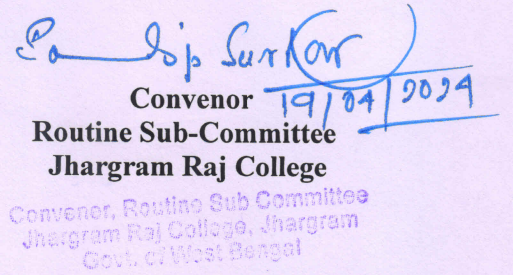 Sandip Sarkar
19/04/2024
Convenor
Routine Sub-Committee
Jhargram Raj College
Convenor, Routine Sub Committee
Jhargram Raj College, Jhargram
Govt. of West Bengal